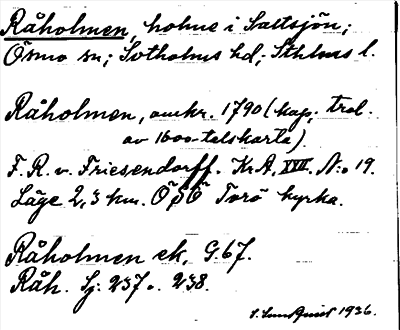 Råholmen, holme i Saltsjön;
Ösmo sn; Sotholms hd; Sthlms l.
Råholmen, omkr. 1790 (kop. trol.
av 1600-talskarta)
F. R. v. Friesendorff. Kr.A. XVII. N:o 19.
Läge 2,3 km. Ö p Ö Torö kyrka.
Råholmen ek, G.67.
Råh. Sj. 237 o. 238.
S. Lundquist 1936.